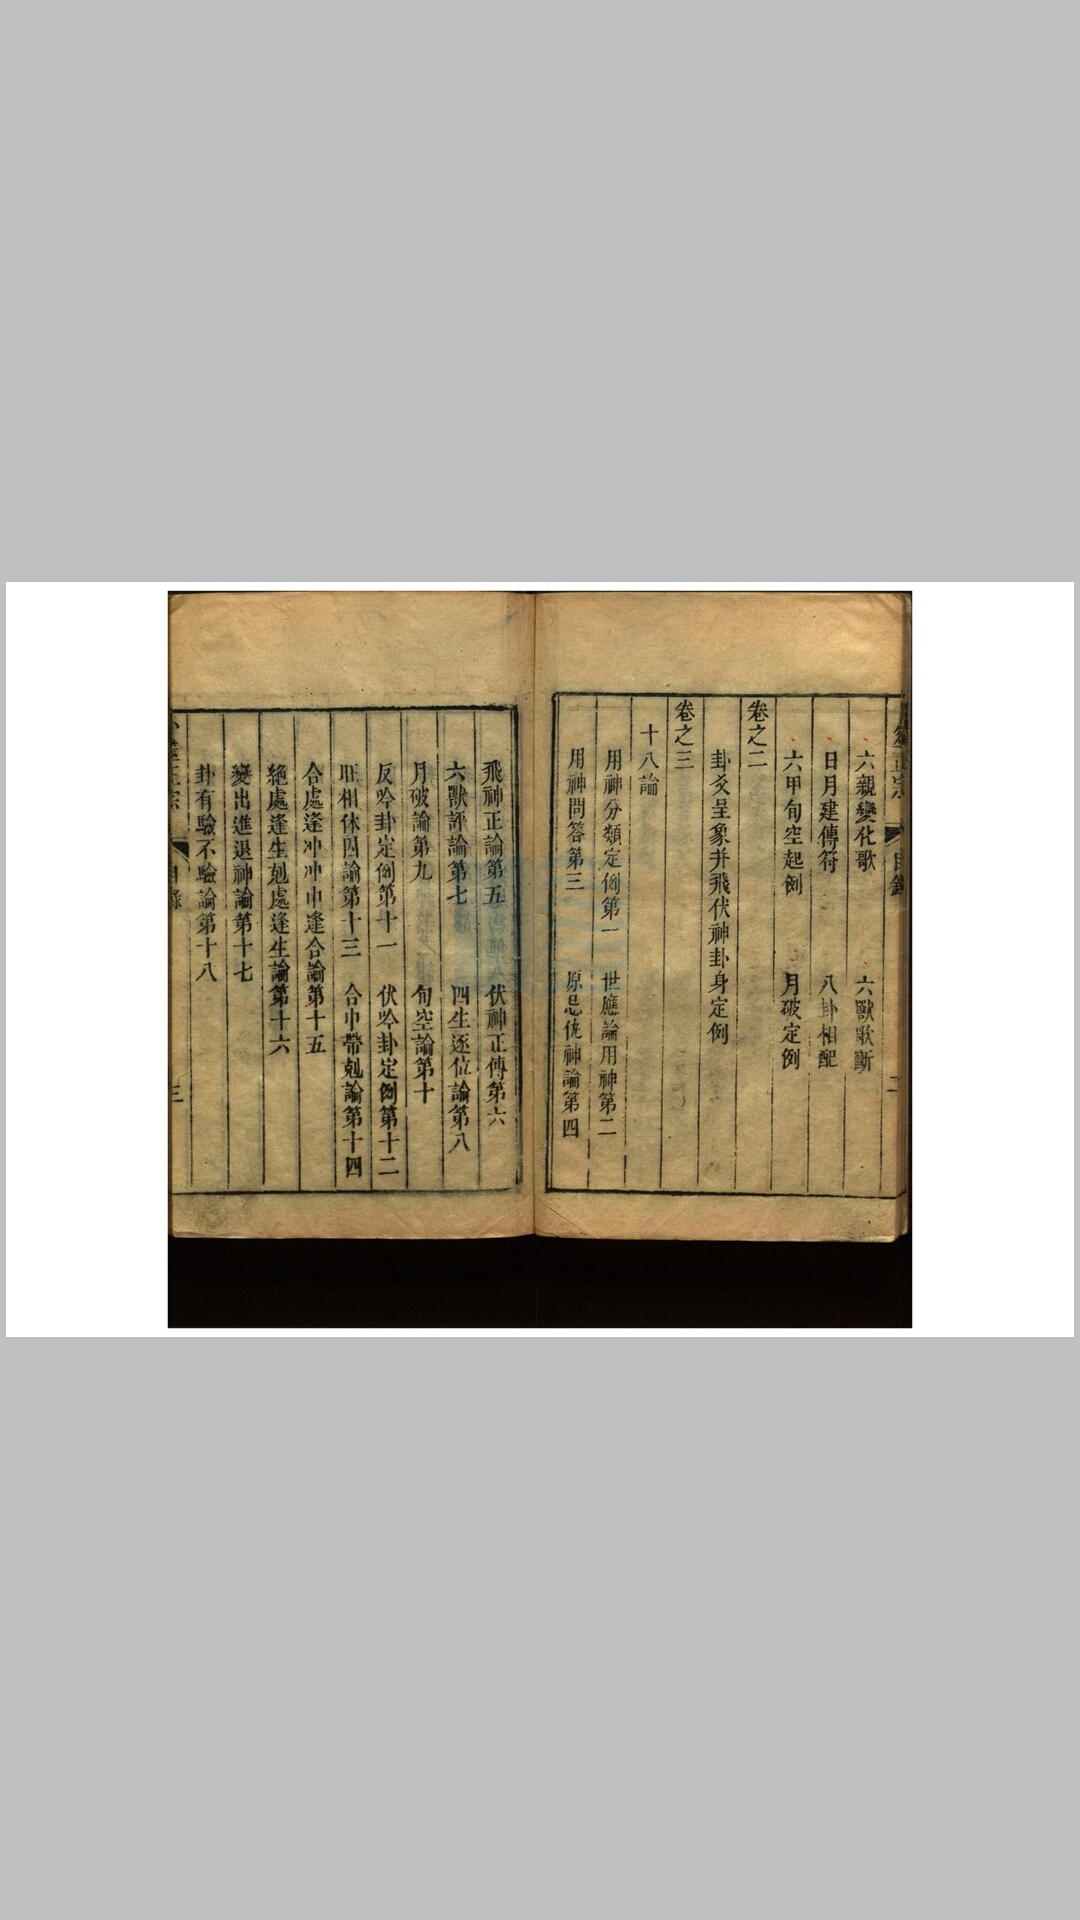 卜筮正宗 目錄 二
六親變化歌 六獸歌斷
日月建傳符 八卦相配
六甲旬空起例 月破定例
卷之二
卦爻呈象并飛伏神卦身定例
卷之三
十八論
用神分類定例第一 世應論用神第二
用神問答第三 原忌仇神論第四
飛神正論第五 伏神正傳第六
六獸評論第七 四生逐位論第八
月破論第九 旬空論第十
反吟卦定例第十一 伏吟卦定例第十二
旺相休囚論第十三 合中帶剋論第十四
合處逢冲冲中逢合論第十五
絶處逢生剋處逢生論第十六
變出進退神論第十七
卦有驗不驗論第十八
卜筮正宗 目錄 三